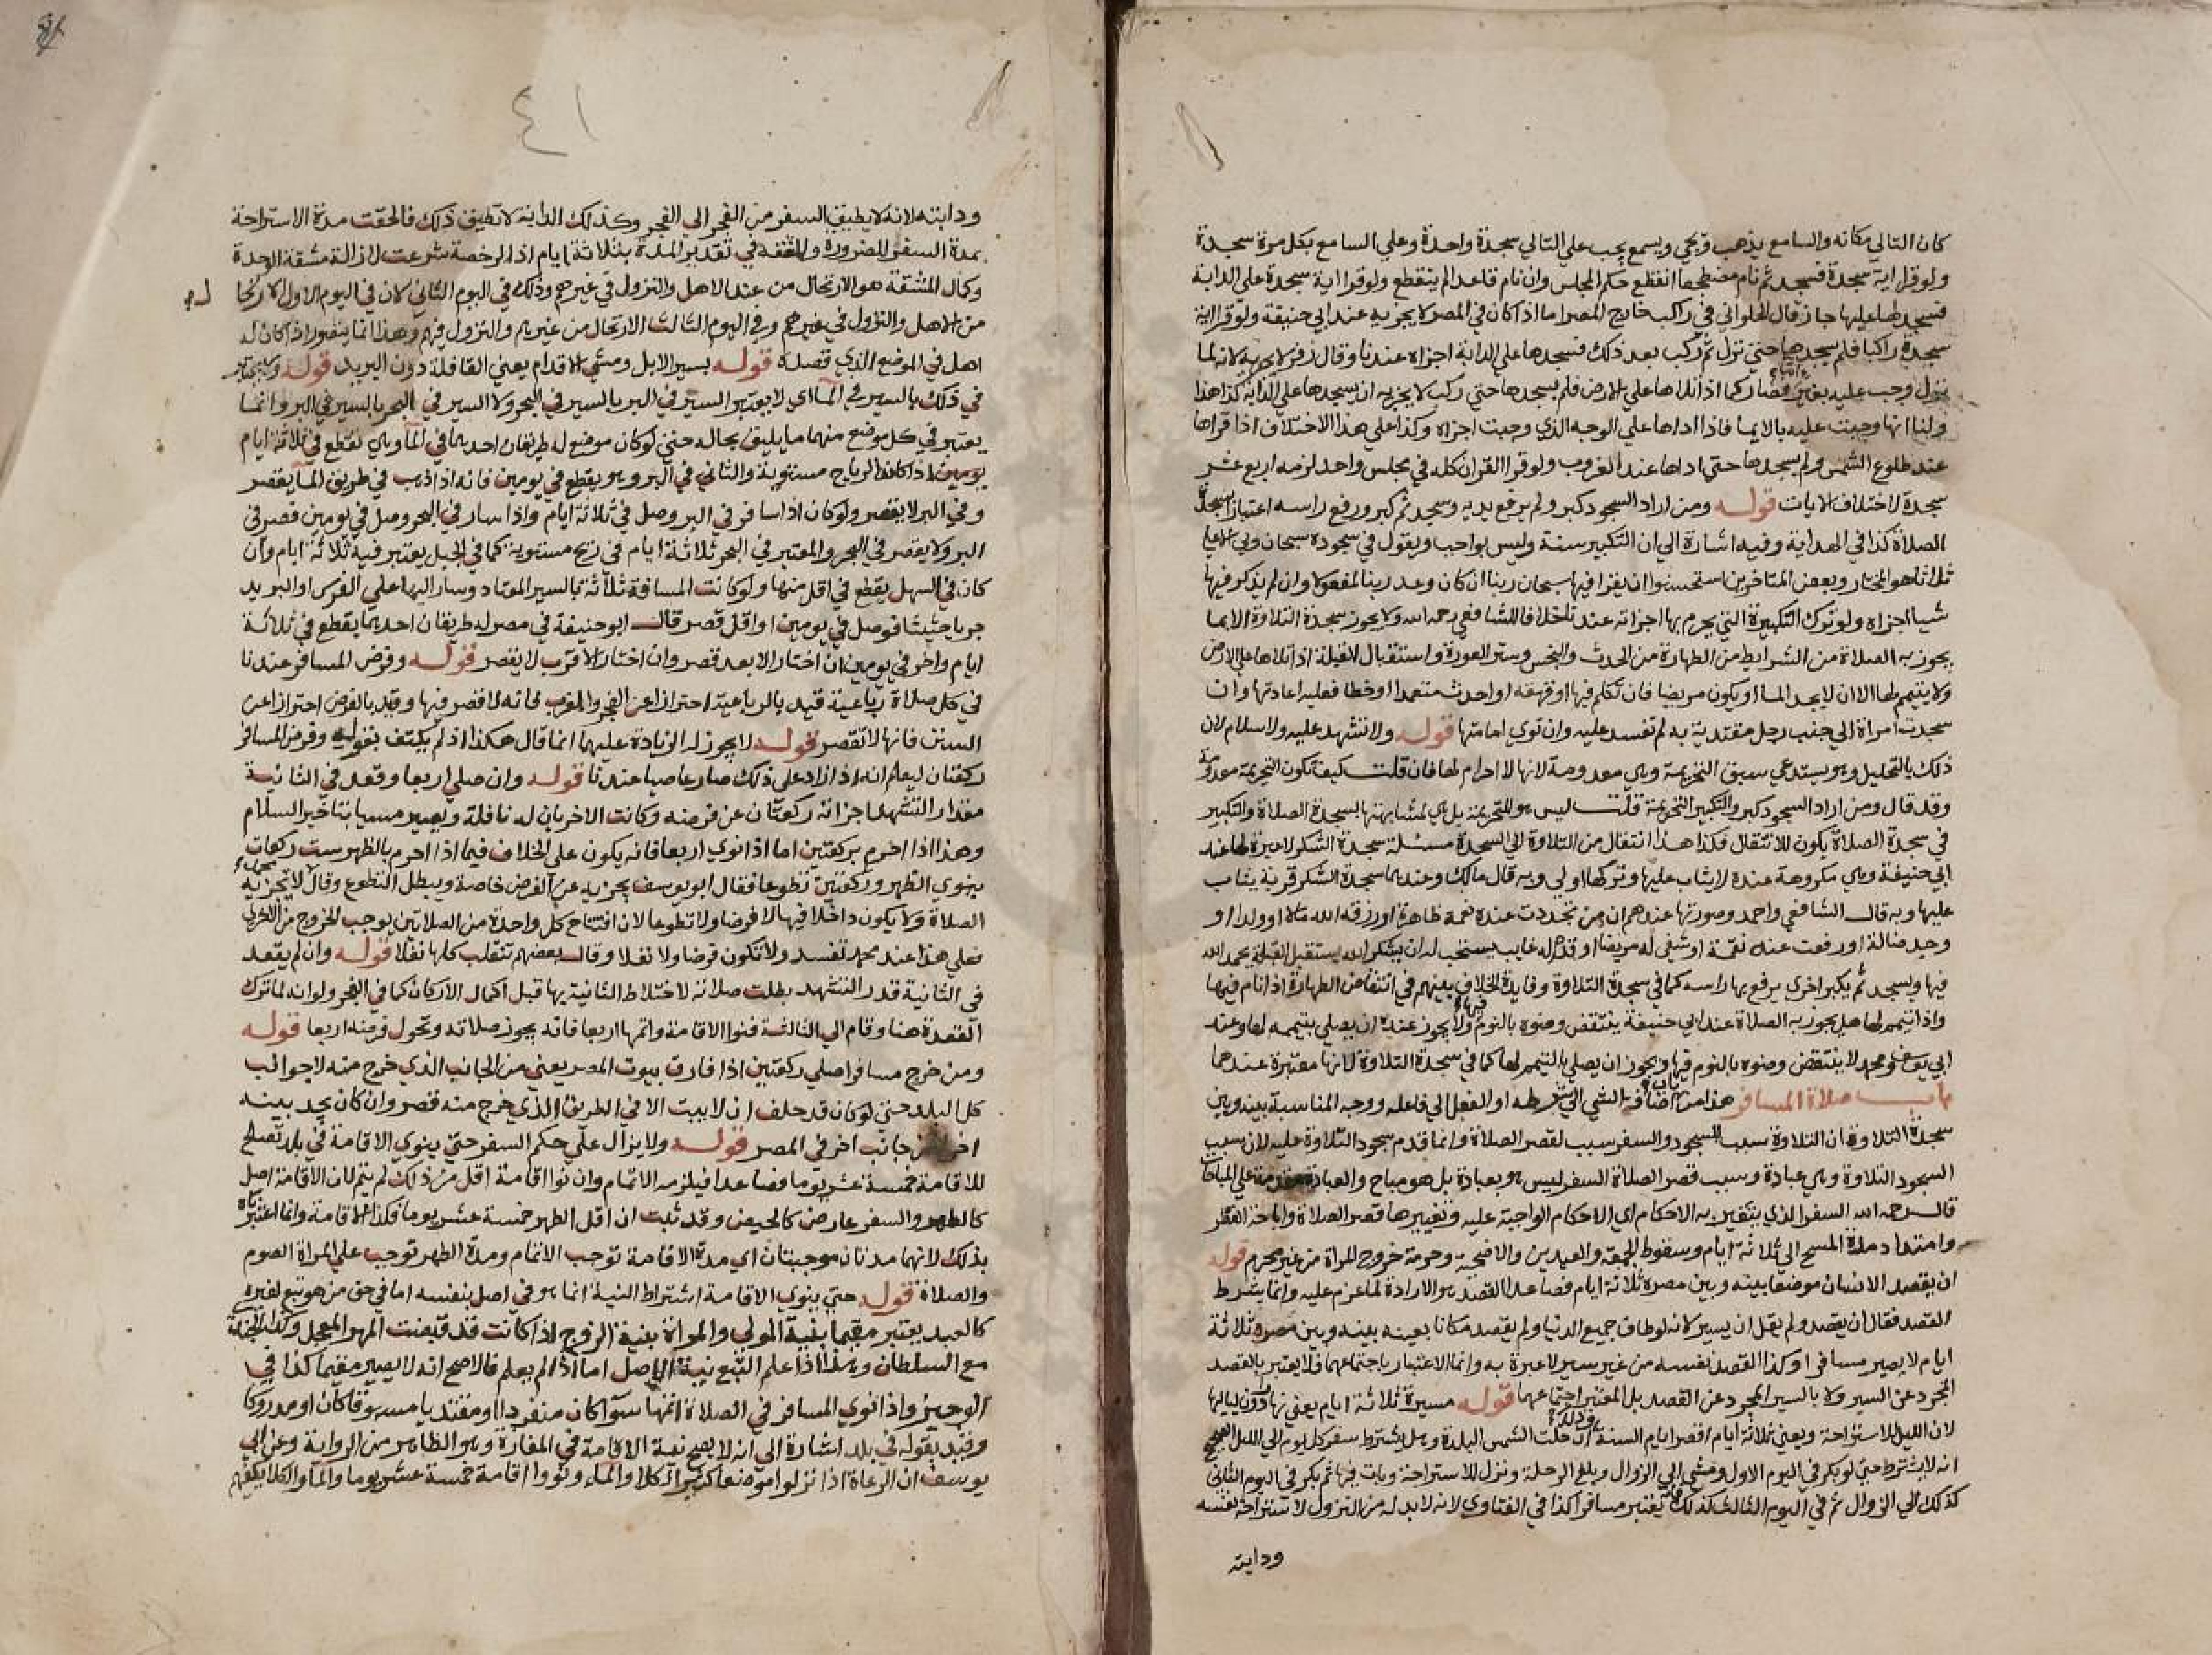 كان التالي مكانه والسامع يذهب ويجي ويسمع يجب علي التالي سجدة واحدة وعلي السامع بكل مرة سجدة
ولو قرا اية سجدة فسجد ثم نام مضطجعا انقطع حكم المجلس وان نام قاعدا لم ينقطع ولو قرا اية سجدة على الدابة
فسجد لها عليها جاز قال الحلواني في راكب خارج المصر اما اذا كان في المصر لا يجزيه عند ابي حنيفة ولو قرا اية
سجدة راكبا فلم يسجدها حتي نزل ثم ركب بعد ذلك فسجدها علي الدابة اجزاه عندنا وقال زفر لا يجزيه لانه لما
نزل وجب عليه بغير ايماء فصار كما اذا تلاها علي الارض فلم يسجدها حتي ركب لا يجزيه ان يسجدها علي الدابة كذا هذا
ولنا انها وجبت عليه بالايما فاذا اداها علي الوجه الذي وجبت اجزاه وكذا علي هذا الاختلاف اذا قراها
عند طلوع الشمس ولم يسجدها حتي اداها عند الغروب ولو قرا القران كله في مجلس واحد لزمه اربع عشر
سجدة لاختلاف الايات قوله ومن اراد السجود كبر ولم يرفع يديه وسجد ثم كبر ورفع راسه اعتبارا بسجدة
الصلاة كذا في الهداية وفيه اشارة الي ان التكبير سنة وليس بواجب ويقول في سجوده سبحان ربي الاعلي
ثلاثا هو المختار وبعض المتاخرين استحسنوا ان يقرا فيها سبحان ربنا ان كان وعد ربنا لمفعولا وان لم يذكر فيها
شيا اجزاه ولو ترك التكبيرة التي يحرم بها اجزاته عندنا خلافا للشافعي رحمه الله ولا يجوز سجدة التلاوة الا بما
يجوز به الصلاة من الشرايط من الطهارة من الحدث والنجس وستر العورة واستقبال القبلة اذا تلاها علي الارض
ولا يتيمم لها الا ان لا يجد الما او يكون مريضا فان تكلم فيها او قهقهه او احدث متعمدا او خطا فعليه اعادتها وان
سجدت امراة الي جنب رجل مقتدية به لم تفسد عليه وان نوي امامتها قوله ولا تشهد عليه ولا سلام لان
ذلك بالتحليل وهو يستدعي سبق التحريمة وهي معدومة لانها لا احرام لها فان قلت كيف تكون التحريمة معدومة
وقد قال ومن اراد السجود كبر والتكبير التحريمة قلت ليس هو للتحريمة بل هي لمشابهتها بالسجدة الصلاة والتكبير
في سجدة الصلاة يكون للانتقال فكذا هذا انتقال من التلاوة الي السجدة مسئلة سجدة الشكر لا عبرة لها عند
ابي حنيفة وهي مكروهة عنده لا يثاب عليها وتركها اولي وبه قال مالك وعندهما سجدة الشكر قربة يثاب
عليها وبه قال الشافعي واحمد وصورتها عندهم ان من تجددت عنده نعمة ظاهرة او رزقه الله مالا او ولدا او
وجد ضالة او رفعت عنه نقمة او شفي له مريضا او قدم له غايب يستحب له ان يشكر الله يستقبل القبلة يحمد الله
فيها ويسجد ثم يكبر اخري يرفع بها راسه كما في سجدة التلاوة وفايدة الخلاف بينهم في انتقاض الطهارة اذا نام فيها
واذا تيمم لها هل يجوز به الصلاة عند ابي حنيفة ينتقض وضوه بالنوم فيها ولا يجوز عنده ان يصلي بتيممه لها وعند
ابي يوسف ومحمد لا ينتقض وضوه بالنوم فيها ويجوز ان يصلي بالتيمم لها كما في سجدة التلاوة لانها معتبرة عندهما
باب صلاة المسافر هذا من باب اضافة الشي الي شرطه او الفعل الي فاعله ووجه المناسبة بينه وبين
سجدة التلاوة ان التلاوة سبب للسجود والسفر سبب لقصر الصلاة وانما قدم سجود التلاوة عليه لان سبب
السجود التلاوة وهي عبادة وسبب قصر الصلاة السفر ليس هو بعبادة بل هو مباح والعبادة مقدمة علي المباحات
قال رحمه الله السفر الذي يتغير به الاحكام اي الاحكام الواجبة عليه وتغييرها قصر الصلاة واباحة الفطر
وامتداد مدة المسح الي ثلاثة ايام وسقوط الجمعة والعيدين والاضحية وحرمة خروج المراة من غير محرم قوله
ان يقصد الانسان موضعا بينه وبين مصره ثلاثة ايام فصاعدا القصد هو الارادة لما عزم عليه وانما يشترط
القصد فقال ان يقصد ولم يقل ان يسير لانه لو طاف جميع الدنيا ولم يقصد مكانا بعينه بينه وبين مصره ثلاثة
ايام لا يصير مسافرا وكذا القصد نفسه من غير سير لا عبرة به وانما الاعتبار باجتماعهما فلا يعتبر بالقصد
المجرد عن السير ولا بالسير المجرد عن القصد بل المعتبر اجتماعهما قوله مسيرة ثلاثة ايام يعني نهارا دون لياليها
لان الليل للاستراحة ويعني ثلاثة ايام اقصر ايام السنة وذلك اذا حلت الشمس البلدة وهل يشترط سفر كل يوم الي الليل الصحيح
انه لا يشترط حتي لو بكر في اليوم الاول ومشي الي الزوال وبلغ الرحلة ونزل للاستراحة وبات فيها ثم بكر في اليوم الثاني
كذلك الي الزوال ثم في اليوم الثالث كذلك فانه يعتبر مسافرا كذا في الفتاوي لانه لا بد له من النزول لاستراحة نفسه
ودابته
٤١
ودابته لانه لا يطيق السفر من الفجر الي الفجر وكذلك الدابة لا تطيق ذلك فالحقت مدة الاستراحة
بمدة السفر للضرورة والفقه في تقدير المدة بثلاثة ايام اذ الرخصة شرعت لازالة مشقة الوحدة
وكمال المشقة هو الارتحال من عند الاهل والنزول في غيرهم وذلك في اليوم الثاني لان في اليوم الاول الارتحال
من الاهل والنزول في غيرهم وفي اليوم الثالث الارتحال من غيرهم والنزول فيهم وهذا انما يتصور اذا كان له
اهل في الموضع الذي قصده قوله بسير الابل ومشي الاقدام يعني القافلة دون البريد قوله ولا يعتبر
في ذلك بالسير في الما اي لا يعتبر السير في البر بالسير في البحر ولا السير في البحر بالسير في البر وانما
يعتبر في كل موضع منهما ما يليق بحاله حتي لو كان موضع له طريقان احدهما في الما وهي تقطع في ثلاثة ايام
يومين اذا كانت الرياح مستوية والثاني في البر وهو يقطع في يومين فانه اذا ذهب في طريق الما يقصر
وفي البر لا يقصر ولو كان اذا سافر في البر وصل في ثلاثة ايام واذا سار في البحر وصل في يومين قصر في
البر ولا يقصر في البحر والمعتبر في البحر ثلاثة ايام في ريح مستوية كما في الجبل يعتبر فيه ثلاثة ايام وان
كان في السهل يقطع في اقل منها ولو كانت المسافة ثلاثة بالسير المعتاد وسار اليها علي الفرس او البريد
جريا حثيثا فوصل في يومين او اقل قصر قال ابو حنيفة في مصر له طريقان احدهما يقطع في ثلاثة
ايام واخر في يومين ان اختار الابعد قصر وان اختار الاقرب لا يقصر قوله وفرض المسافر عندنا
في كل صلاة رباعية قيد بالرباعية احترازا عن الفجر والمغرب فانه لا قصر فيها وقيد بالفرض احترازا عن
السنن فانها لا تقصر قوله لا يجوز له الزيادة عليهما انما قال هكذا اذ لم يكتف بقوله وفرض المسافر
ركعتان ليعلم انه اذا زاد علي ذلك صار عاصيا عندنا قوله وان صلي اربعا وقعد في الثانية
مقدار التشهد اجزاته ركعتان عن فرضه وكانت الاخريان له نافلة ويصير مسيا بتاخير السلام
وهذا اذا احرم بركعتين اما اذا نوي اربعا فانه يكون علي الخلاف فيما اذا احرم بالظهر ست ركعات
ينوي الظهر وركعتين تطوعا فقال ابو يوسف يجزيه عن الفرض خاصة ويبطل التطوع وقال محمد لا تجزيه
الصلاة ولا يكون داخلا فيها لا فرضا ولا تطوعا لان افتتاح كل واحدة من الصلاتين يوجب الخروج من الاخري
فعلي هذا عند محمد تفسد ولا تكون فرضا ولا نفلا وقال بعضهم تنقلب كلها نفلا قوله وان لم يقعد
في الثانية قدر التشهد بطلت صلاته لاختلاط الثانية بها قبل اكمال الاركان كما في الفجر ولو انه لما ترك
القعدة هنا وقام الي الثالثة فنوا الاقامة واتمها اربعا فانه يجوز صلاته وتحول فرضه اربعا قوله
ومن خرج مسافرا صلي ركعتين اذا فارق بيوت المصر يعني من الجانب الذي خرج منه لا جوانب
كل البلد حتي لو كان قد خلف ابنية الا في الطريق الذي خرج منه قصر وان كان بحدا بيته
اخر من جانب اخر في المصر قوله ولا يزال علي حكم السفر حتي ينوي الاقامة في بلد تصلح
للاقامة خمسة عشر يوما فصاعدا فيلزمه الاتمام وان نوا اقامة اقل من ذلك لم يتم لان الاقامة اصل
كالطهر والسفر عارض كالحيض وقد ثبت ان اقل الطهر خمسة عشر يوما فكذا الاقامة وانما اعتبرناه
بذلك لانهما مدتان موجبتان اي مدة الاقامة توجب الاتمام ومدة الطهر توجب علي المراة الصوم
والصلاة قوله حتي ينوي الاقامة اشتراط النية انما هو في اصل بنفسه اما في حق من هو تبع لغيره
كالعبد يعتبر مقيما بنية المولي والمراة بنية الزوج اذا كانت قد قبضت المهر المعجل وكذا الجند
مع السلطان وهذا اذا علم التبع نية الاصل اما اذا لم يعلم فالاصح انه لا يصير مقيما كذا في
الوجيز واذا نوي المسافر في الصلاة اتمها سوا كان منفردا او مقتديا مسبوقا كان او مدركا
وقيد بقوله في بلد اشارة الي انه لا يصح نية الاقامة في المفازة وهو الظاهر من الرواية وعن ابي
يوسف ان الرعاة اذا نزلوا موضعا كثير الكلا والماء ونووا اقامة خمسة عشر يوما والما والكلا يكفيهم